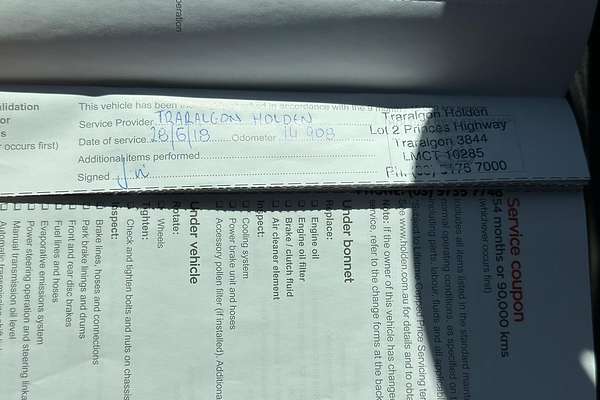 peration
lidation
or
s
occurs first)
This vehicle has been in accordance with the 9 month
Service Provider TRARALGON HOLDEN
Date of service 28/6/18 Odometer 14 908
Additional items performed
Signed
Traralgon Holden
Lot 2 Princes Highway
Traralgon 3844
LMCT 10285
7000
Service coupon
54 months or 90,000 kms
(whichever occurs first)
includes all items listed in the standard
normal operating conditions, as specified on
See www.holden.com.au for details and to
Note: If the owner of this vehicle has changed
service, refer to the change forms at the back
Under bonnet
Replace:
Engine oil
Engine oil filter
Brake / clutch fluid
Air cleaner element
Inspect:
Cooling system
Power brake unit and hoses
Accessory pollen filter (if installed). Additional
Under vehicle
Rotate:
Wheels
Tighten:
Check and tighten bolts and nuts on chassis
Inspect:
Brake lines, hoses and connections
Park brake linings and drums
Front and rear disc brakes
Fuel lines and hoses
Evaporative emissions system
Power steering operation and steering linka
Manual transmission oil level